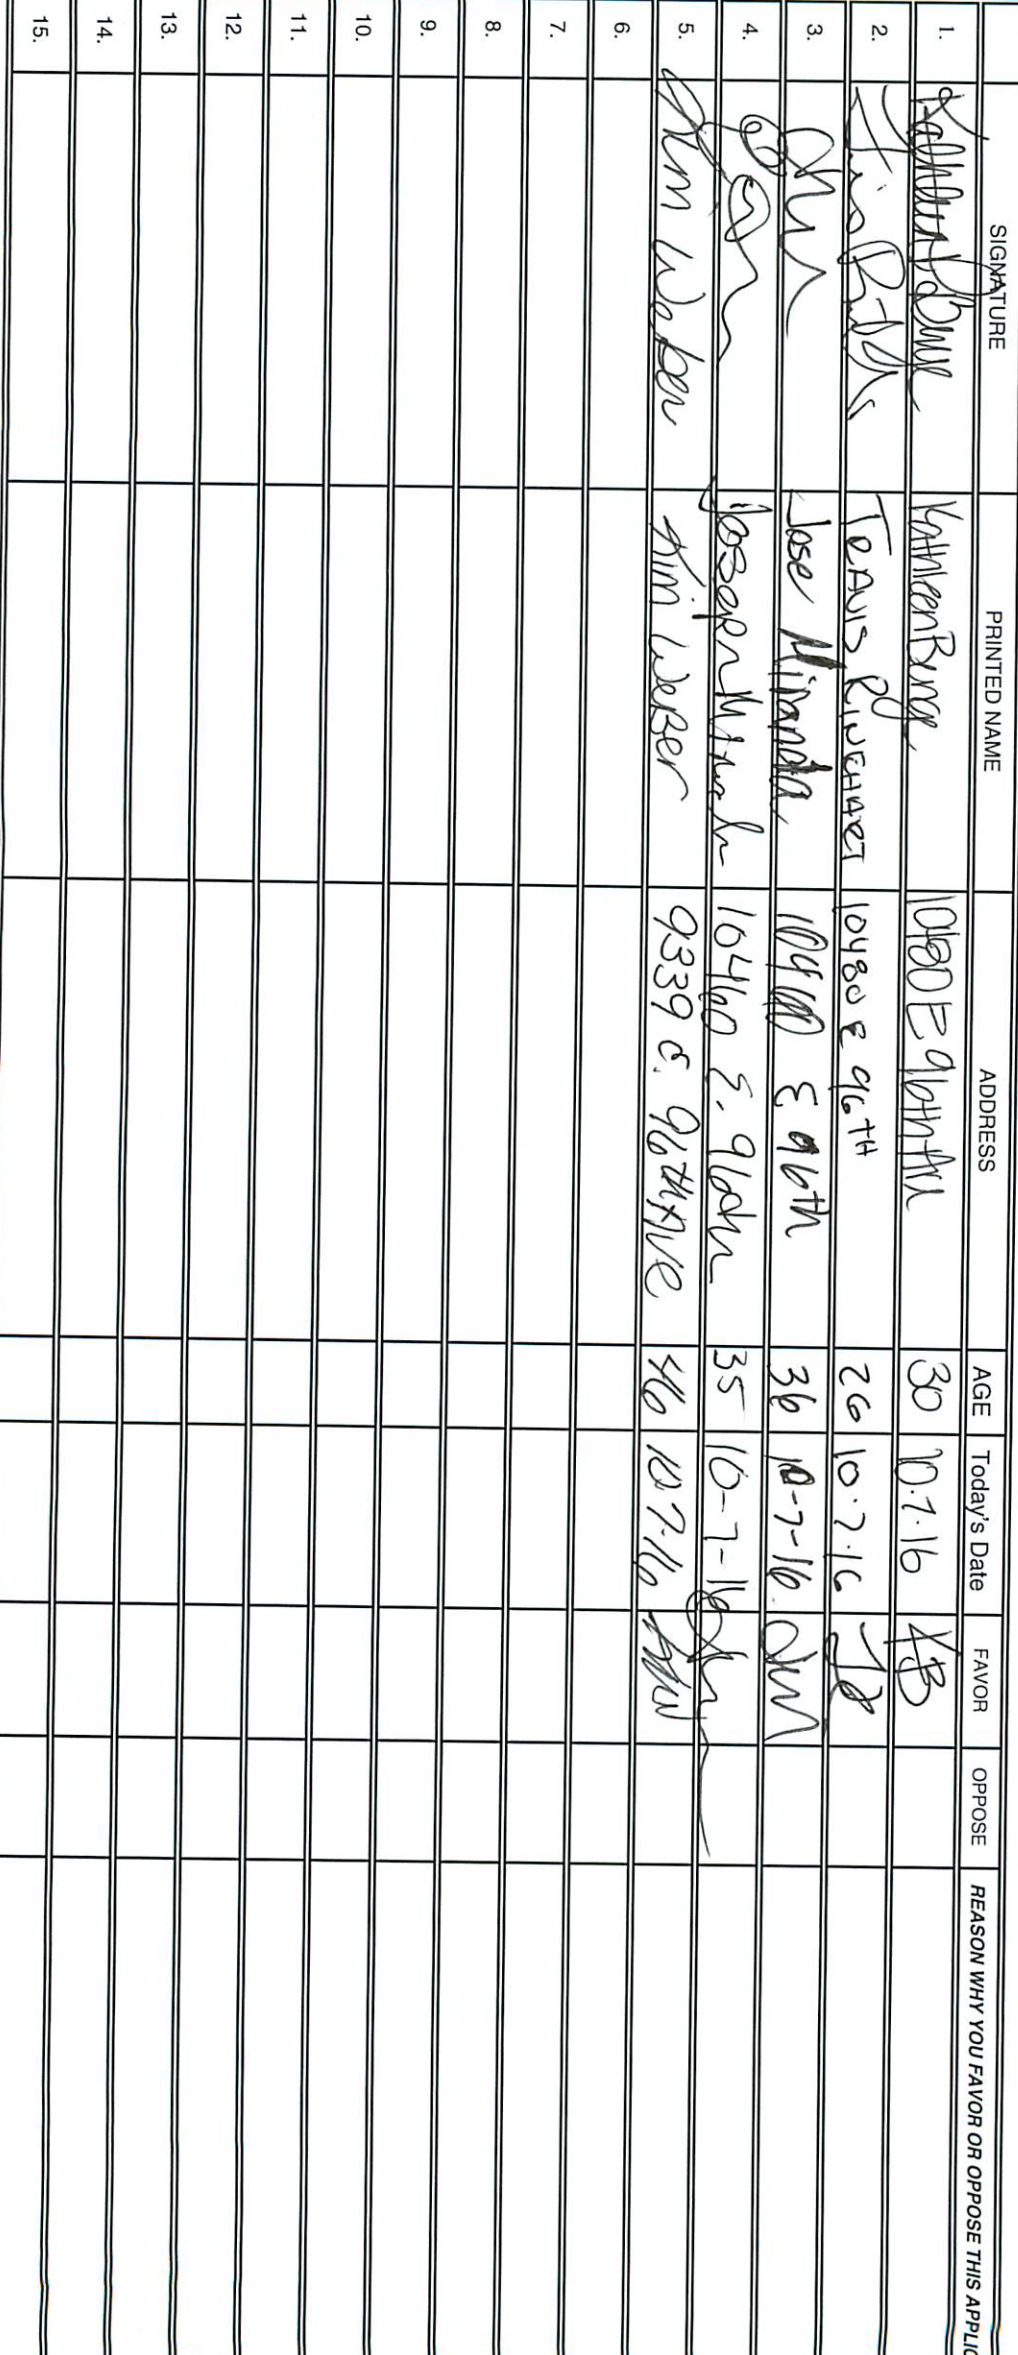 SIGNATURE PRINTED NAME ADDRESS AGE Today's Date FAVOR OPPOSE REASON WHY YOU FAVOR OR OPPOSE THIS APPLIC
1. Kathleen 10180 E 96th Ave 30 10.7.16 KB
2. TRAVIS RINEHART 10480 E 96TH 26 10.7.16 TR
3. Jose Miranda 10460 E 96th 36 10-7-16
4. 10460 E. 96th 35 10-7-16
5. Kim Weber Kim Weber 9339 E. 96th Ave 46 10.7.16 KW
6.
7.
8.
9.
10.
11.
12.
13.
14.
15.